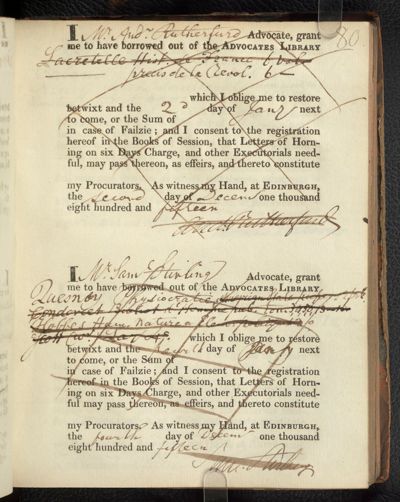 80.
I, Mr. Andw. Rutherfurd Advocate, grant
me to have borrowed out of the ADVOCATES LIBRARY
Lacretelle Hist. de France 6 vols
precis de la Revol.
which I oblige me to restore
betwixt and the 2d day of Jany next
to come, or the Sum of
in case of Failzie; and I consent to the registration
hereof in the Books of Session, that Letters of Horn-
ing on six Days Charge, and other Executorials need-
ful, may pass thereon, as effeirs, and thereto constitute
my Procurators. As witness my Hand, at EDINBURGH,
the second day of Decem one thousand
eight hundred and fifteen
And. Rutherfurd
I, Mr. Sam. Stirling Advocate, grant
me to have borrowed out of the ADVOCATES LIBRARY
Quesnoy Physiocratie
which I oblige me to restore
betwixt and the day of Jany next
to come, or the Sum of
in case of Failzie; and I consent to the registration
hereof in the Books of Session, that Letters of Horn-
ing on six Days Charge, and other Executorials need-
ful may pass thereon, as effeirs, and thereto constitute
my Procurators. As witness my Hand, at EDINBURGH,
the fourth day of Decem one thousand
eight hundred and fifteen
Stirling